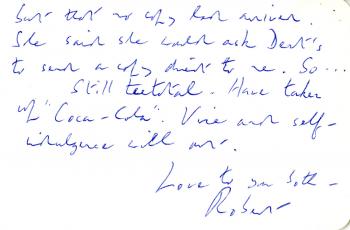 but that no copy had arrived.
She said she would ask Dent's
to send a copy direct to me. So ...
Still teetotal. Have taken
up "Coca-Cola". Vice and self-
indulgence will out.
Love to you both -
Robert